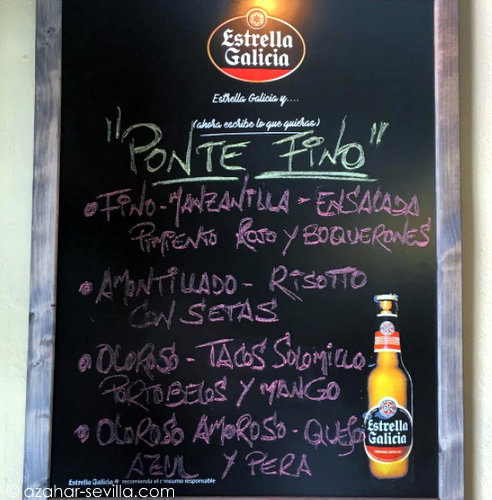 Estrella
Galicia
Estrella Galicia y....
(ahora escribe lo que quieras)
"PONTE FINO"
• FINO - MANZANILLA - ENSALADA
PIMIENTO ROJO Y BOQUERONES
• AMONTILLADO - RISOTTO
CON SETAS
• OLOROSO - TACOS SOLOMILLO
PORTOBELOS Y MANGO
• OLOROSO AMOROSO - QUESO
AZUL Y PERA
Estrella
Galicia
CERVEZA ESPECIAL
Estrella Galicia recomienda el consumo responsable
© azahar-sevilla.com